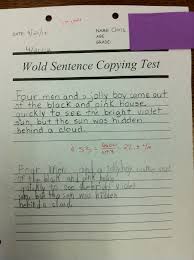 DATE: 9/21/15
NAME Chris
AGE
GRADE:
Wold Sentence Copying Test
Four men and a jolly boy came out
of the black and pink house
quickly to see the bright violet
sun, but the sun was hidden
behind a cloud.
Four Men and a jolly boy came out
of the black and pink house
quickly to see the bright violet
sun, but the sun was hidden
behind a cloud.